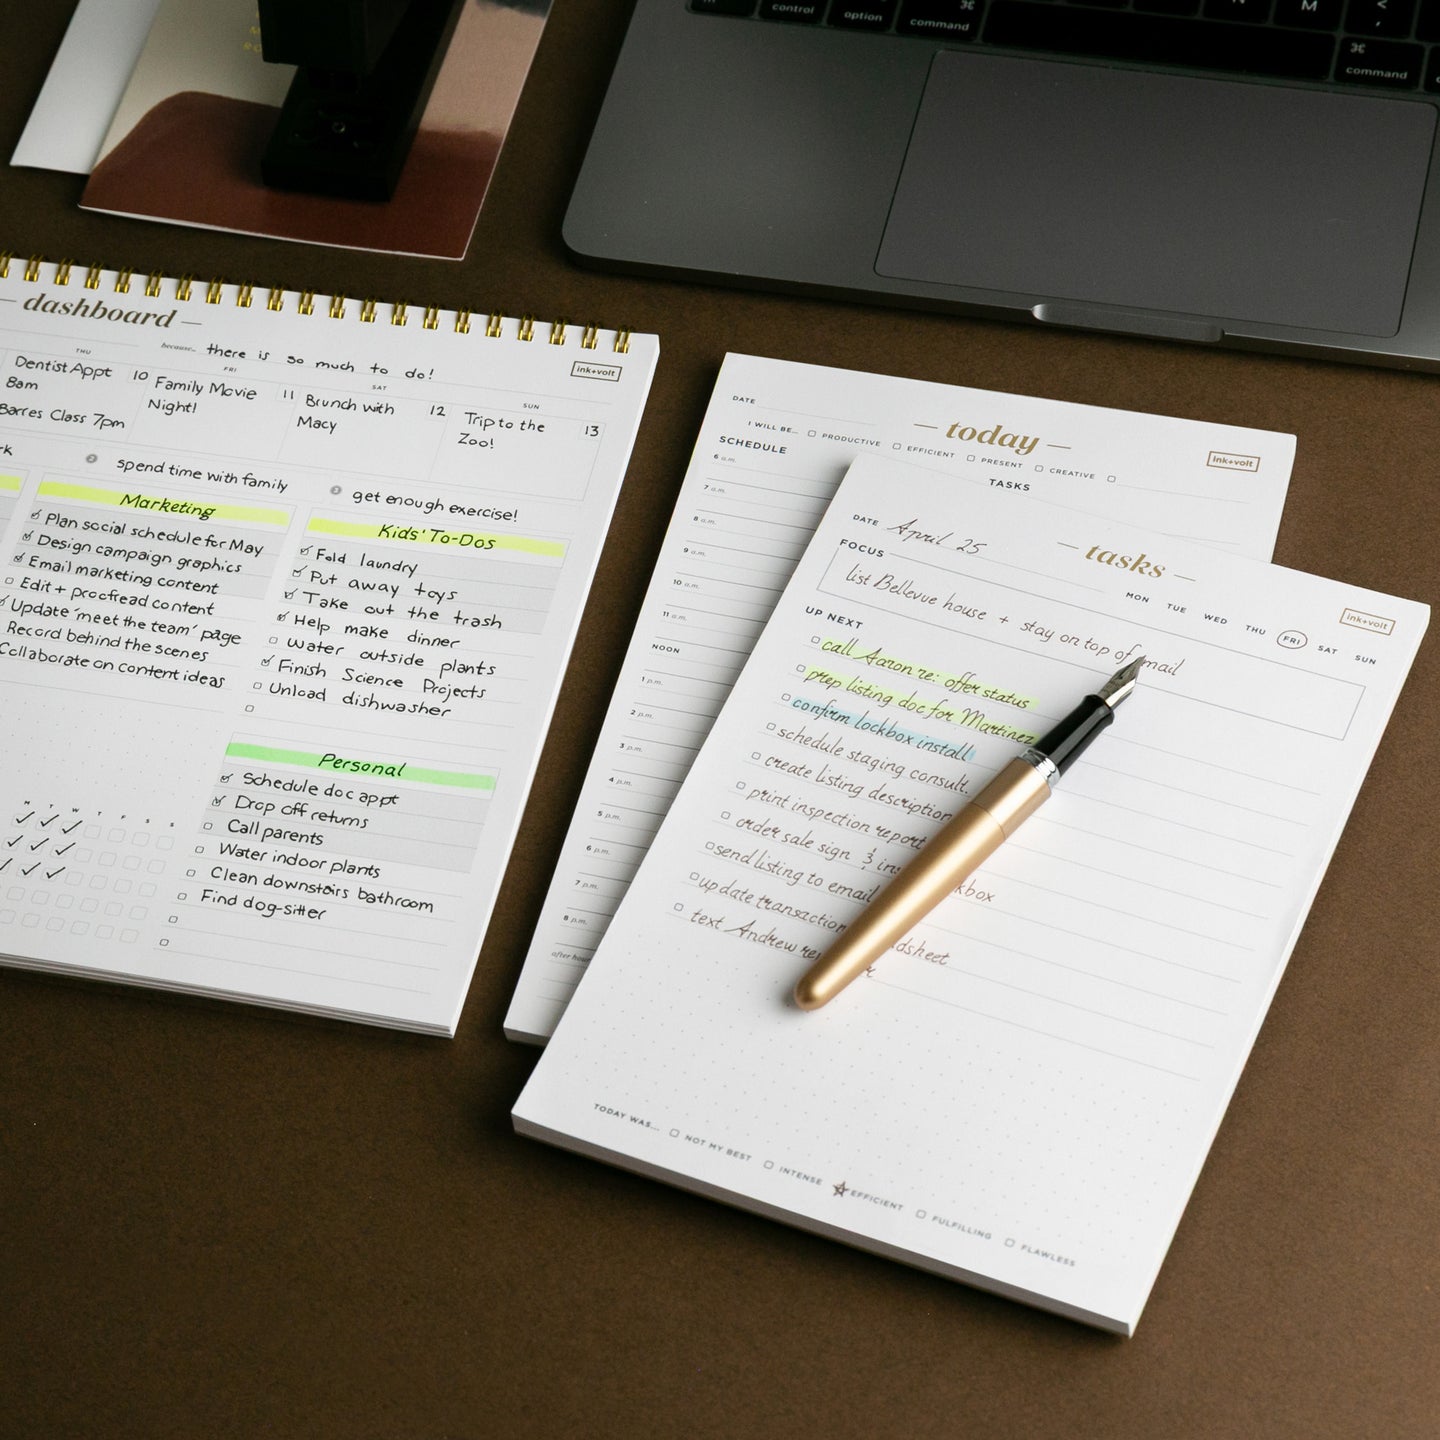 control
option
⌘
command
N
M
<
,
⌘
command
— dashboard —
because... there is so much to do!
ink+volt
THU
FRI
SAT
SUN
Dentist Appt
8am
Barres Class 7pm
10
Family Movie
Night!
11
Brunch with
Macy
12
Trip to the
Zoo!
13
spend time with family
3 get enough exercise!
Marketing
Plan social schedule for May
Design campaign graphics
Email marketing content
Edit + proofread content
Update 'meet the team' page
Record behind the scenes
Collaborate on content ideas
Kids' To-Dos
Fold laundry
Put away toys
Take out the trash
Help make dinner
Water outside plants
Finish Science Projects
Unload dishwasher
Personal
Schedule doc appt
Drop off returns
Call parents
Water indoor plants
Clean downstairs bathroom
Find dog-sitter
M T W T F S S
DATE
— today —
I WILL BE... PRODUCTIVE EFFICIENT PRESENT CREATIVE
ink+volt
SCHEDULE
TASKS
6 a.m.
7 a.m.
8 a.m.
9 a.m.
10 a.m.
11 a.m.
NOON
1 p.m.
2 p.m.
3 p.m.
4 p.m.
5 p.m.
6 p.m.
7 p.m.
8 p.m.
after hours
DATE April 25
— tasks —
MON TUE WED THU FRI SAT SUN
ink+volt
FOCUS
list Bellevue house + stay on top of email
UP NEXT
call Aaron re: offer status
prep listing doc for Martinez
confirm lockbox install
schedule staging consult.
create listing description
print inspection report
order sale sign &
send listing to email
update transaction
text Andrew re
TODAY WAS... NOT MY BEST INTENSE EFFICIENT FULFILLING FLAWLESS